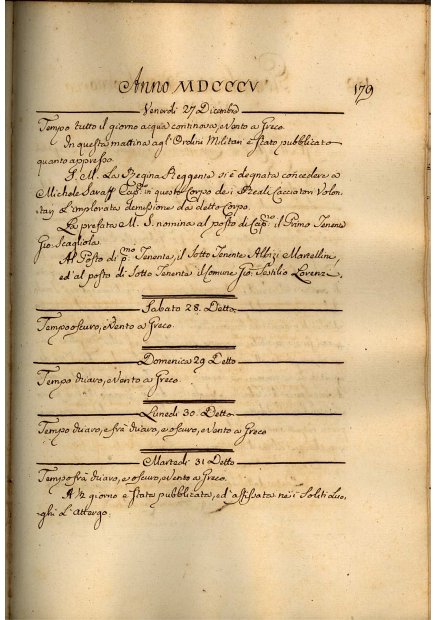 Anno MDCCCV
179
Venerdì 27 Dicembre
Tempo tutto il giorno acqua continova, e Vento a Greco
In questa mattina agl' Ordini Militari è stato pubblicato
quanto appresso.
S. M. La Regina Reggente si è degnata concedere a
Michele Saraff Cap. in questo Corpo dei Reali Cacciatori Volon-
tarj l'implorata demissione da detto Corpo.
La prefata M. S. nomina al posto di Cap.no il Primo Tenente
Gio: Scagliola.
Al Posto di p.mo Tenente, il Sotto Tenente Albizi Marcellini,
ed al posto di Sotto Tenente il Comune Gio: Sestilio Lorenzi.
Sabato 28. Detto
Tempo oscuro, e Vento a Greco.
Domenica 29 Detto
Tempo chiaro, e Vento a Greco
Lunedì 30. Detto
Tempo chiaro, e frà chiaro, e oscuro, e Vento a Greco
Martedì 31 Detto
Tempo frà chiaro, e oscuro, e Vento a Greco.
A ½ giorno è stata pubblicata, ed affissata nei Soliti Luo-
ghi L'Attergo.